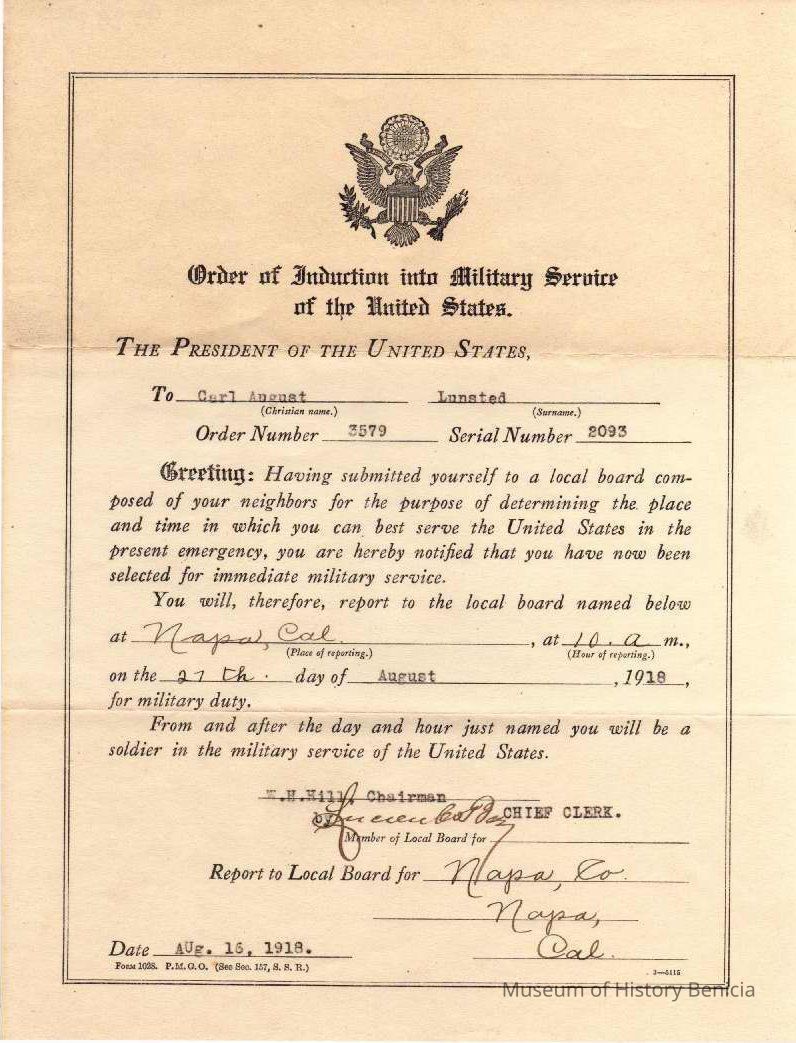 Order of Induction into Military Service
of the United States.
THE PRESIDENT OF THE UNITED STATES,
To Carl August Lunsted
(Christian name.) (Surname.)
Order Number 3579 Serial Number 2093
Greeting: Having submitted yourself to a local board com-
posed of your neighbors for the purpose of determining the place
and time in which you can best serve the United States in the
present emergency, you are hereby notified that you have now been
selected for immediate military service.
You will, therefore, report to the local board named below
at Napa, Cal. , at 10. a m.,
(Place of reporting.) (Hour of reporting.)
on the 27 th. day of August , 1918 ,
for military duty.
From and after the day and hour just named you will be a
soldier in the military service of the United States.
W.H.Hill, Chairman
by CHIEF CLERK.
Member of Local Board for
Report to Local Board for Napa, Co.
Napa,
Date AUg. 16, 1918. Cal.
Form 1028. P.M.G.O. (See Sec. 157, S. S. R.) 3—5115
Museum of History Benicia